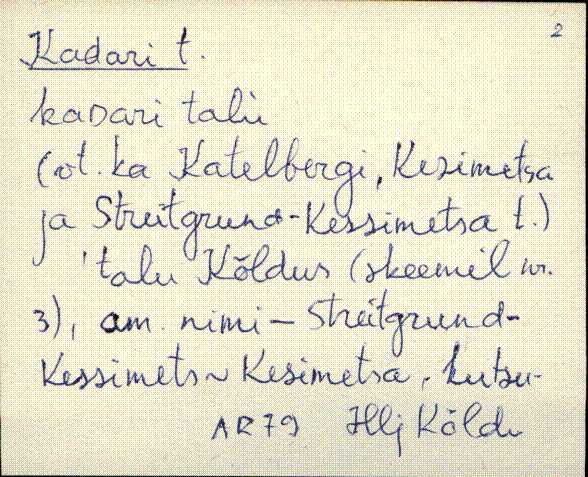 2
Kadari t.
kaDari talù
(vt. ka Katelbergi, Kesimetsa
ja Streitgrund-Kessimetsa t.)
'talu Kõldus (skeemil nr.
3), am. nimi - Streitgrund-
Kessimets ~ Kesimetsa, kutsu-
AR79 Hlj Kõld